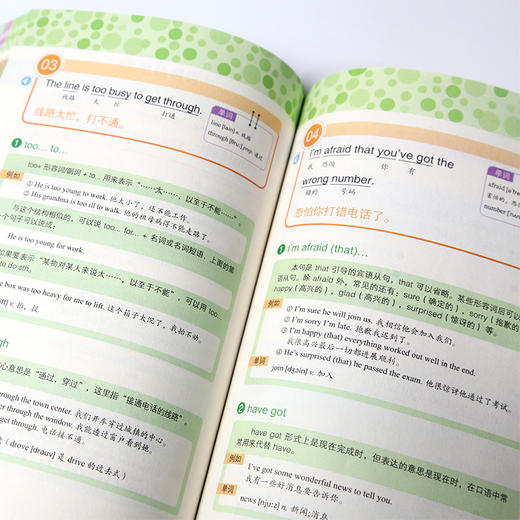 03
The line is too busy to get through.
线路 太 忙 打通
线路太忙，打不通。
单词
line [laɪn] n. 线路
through [θruː] prep. 通过
1 too... to...
too+ 形容词/副词 + to... 用来表示“……太……，以至于不能……”
例如
① He is too young to work. 他太小了，还不能工作。
② His grandma is too ill to walk. 他的祖母病得不能走路了。
与这个结构相似的，可以说 too... for... + 名词或名词短语，上面的第
一个句子可以说成：
He is too young for work.
如果要表示“某物对某人来说太……，以至于不能”，可以用 too...
to do sth.
box was too heavy for me to lift. 这个箱子太沉了，我抬不动。
v. 抬，提
心意思是“通过，穿过”，这里指“接通电话的线路”。
through the town center. 我们开车穿过城镇的中心。
through the window. 我能透过窗户看到她。
get through. 电话接不通。
(drove [drəʊv] 是 drive 的过去式)
04
I'm afraid that you've got the
我 恐怕 你 有
wrong number.
错的 号码
恐怕你打错电话了。
单词
afraid
害怕的，恐
number
1 I'm afraid (that)...
本句是 that 引导的宾语从句，that 可以省略。某些形容词后可以
语从句。除 afraid 外，常见的还有：sure（确定的），sorry（抱歉的
happy（高兴的），glad（高兴的），surprised（惊讶的）等。
例如
① I'm sure he will join us. 我相信他会加入我们。
② I'm sorry I'm late. 抱歉我迟到了。
③ I'm happy (that) everything worked out well in the end.
我很高兴最后一切都进展顺利。
④ He's surprised (that) he passed the exam. 他很惊讶他通过了考试。
单词
join [dʒɔɪn] v. 加入
2 have got
have got 形式上是现在完成时，但表达的意思是现在时，在口语中常
常用来代替 have。
例如
I've got some wonderful news to tell you.
我有一些好消息要告诉你。
单词
news [njuːz] n. 新闻;消息